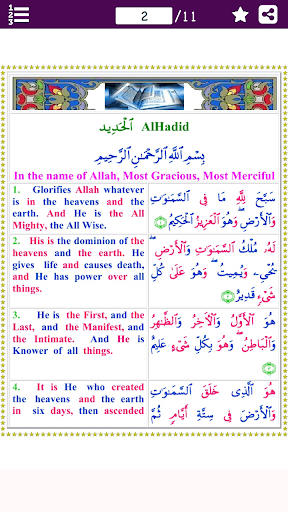 1 2 3
2 /11
الْحَدِيد AlHadid
بِسْمِ اللَّهِ الرَّحْمَٰنِ الرَّحِيمِ
In the name of Allah, Most Gracious, Most Merciful
1. Glorifies Allah whatever
is in the heavens and the
earth. And He is the All
Mighty, the All Wise.
سَبَّحَ لِلَّهِ مَا فِى السَّمَـٰوَٰتِ
وَالْأَرْضِ ۖ وَهُوَ الْعَزِيزُ الْحَكِيمُ
2. His is the dominion of the
heavens and the earth. He
gives life and causes death,
and He has power over all
things.
لَهُۥ مُلْكُ السَّمَـٰوَٰتِ وَالْأَرْضِ ۖ
يُحْىِۦ وَيُمِيتُ ۖ وَهُوَ عَلَىٰ كُلِّ
شَىْءٍ قَدِيرٌ
3. He is the First, and the
Last, and the Manifest, and
the Intimate. And He is
Knower of all things.
هُوَ الْأَوَّلُ وَالْـَٔاخِرُ وَالظَّـٰهِرُ
وَالْبَاطِنُ ۖ وَهُوَ بِكُلِّ شَىْءٍ عَلِيمٌ
4. It is He who created
the heavens and the earth
in six days, then ascended
هُوَ الَّذِى خَلَقَ السَّمَـٰوَٰتِ
وَالْأَرْضَ فِى سِتَّةِ أَيَّامٍ ثُمَّ